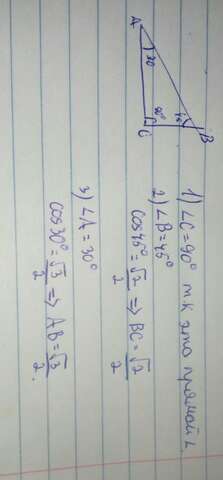 A
30
90°
C
45
B
1) ∠C=90° т.к это прямой ∠.
2) ∠B=45°
cos45°=√2/2 ⇒ BC=√2/2
3) ∠A=30°
cos30°=√3/2 ⇒ AB=√3/2.